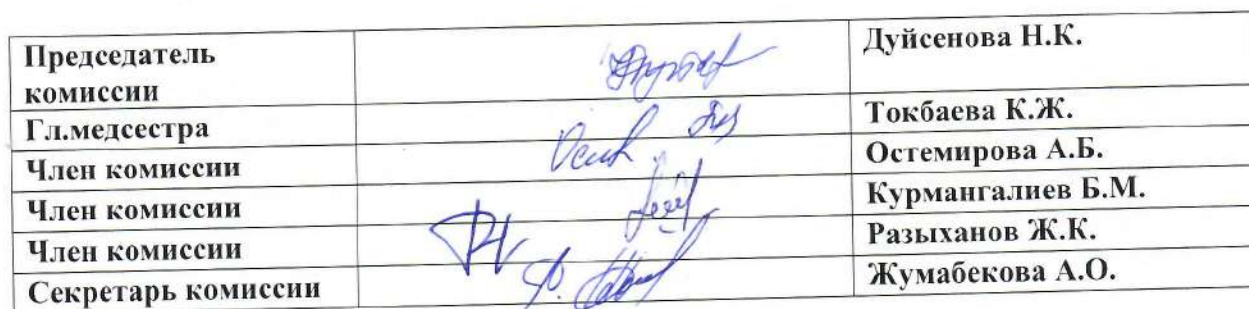 Председатель Дуйсенова Н.К.
комиссии
Гл.медсестра Токбаева К.Ж.
Член комиссии Остемирова А.Б.
Член комиссии Курмангалиев Б.М.
Член комиссии Разыханов Ж.К.
Секретарь комиссии Жумабекова А.О.